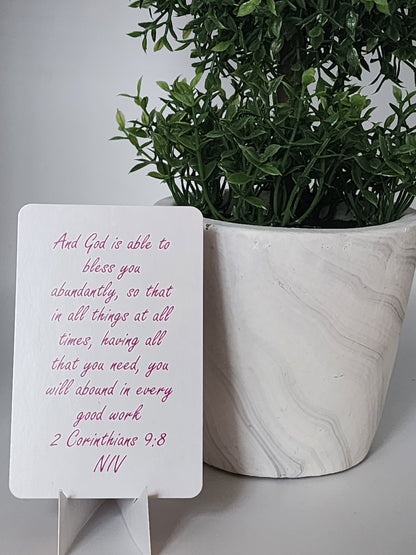 And God is able to
bless you
abundantly, so that
in all things at all
times, having all
that you need, you
will abound in every
good work
2 Corinthians 9:8
NIV